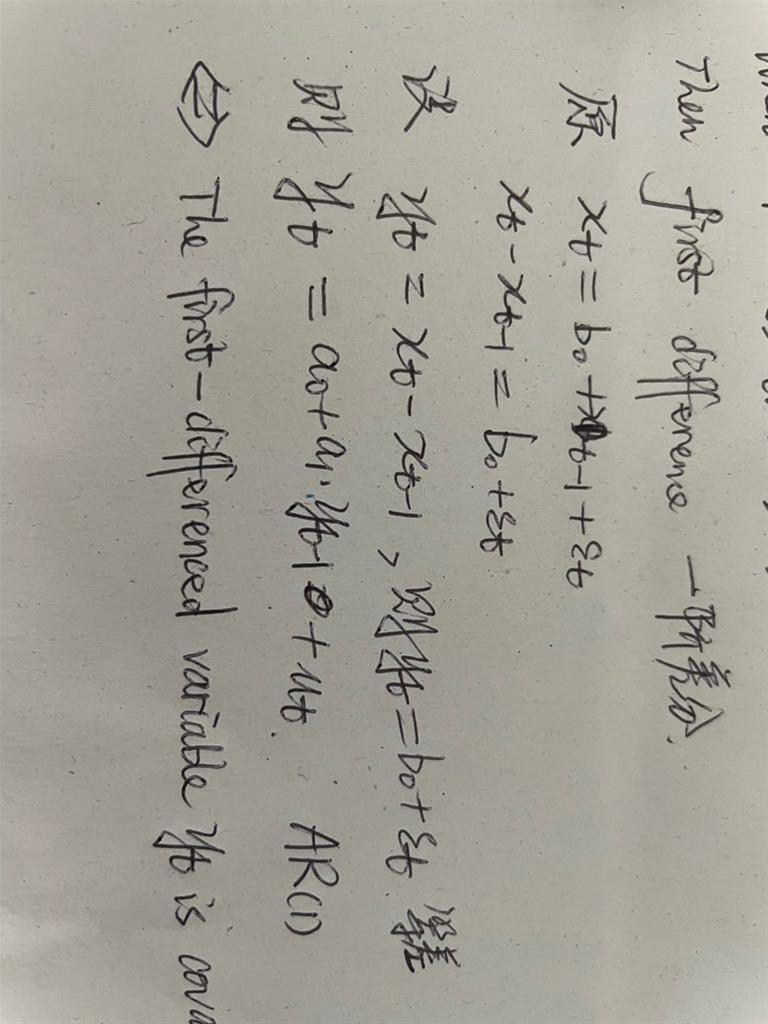 Then first difference 一阶差分.
原 xt = b0 + xt-1 + εt
xt - xt-1 = b0 + εt
设 yt = xt - xt-1, 则 yt = b0 + εt
则 yt = a0 + a1·yt-1 + ut. AR(1)
⇔ The first-differenced variable yt is cova